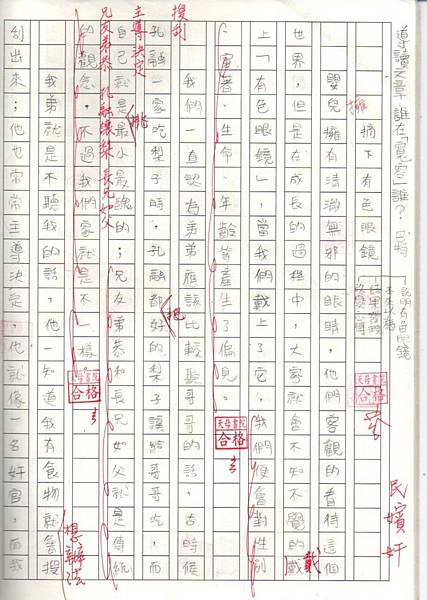 導讀文章:誰在「寬容」誰?
摘下有色眼鏡
說明有色眼鏡
擁
民嬪奸
嬰兒擁有清澈無邪的眼睛,他們會客觀的看待這個
天母書院
合格
世界,但是在成長的過程中,大家就會不知不覺的戴
戴
上「有色眼鏡」,當我們戴上了它,我們便會對性別
、窮富、生命、年齡等產生了偏見。
天母書院
合格
我們一直認為弟弟應該比較聽哥哥的話,古時候
搜刮
把
孔融一家吃梨子時,孔融都好的梨子讓給哥哥吃,而
主導決定
挑
自己就是最小最醜的;兄友弟恭和長兄如父就是傳統
兄友弟恭 孔融讓梨 長兄如父
的觀念,不過我們家就是不一樣,
天母書院
合格
我弟就是不聽我的話,他一知道我有食物就會搜
想辦法
刮出來;他也常常主導決定,他就像一名奸官,而我